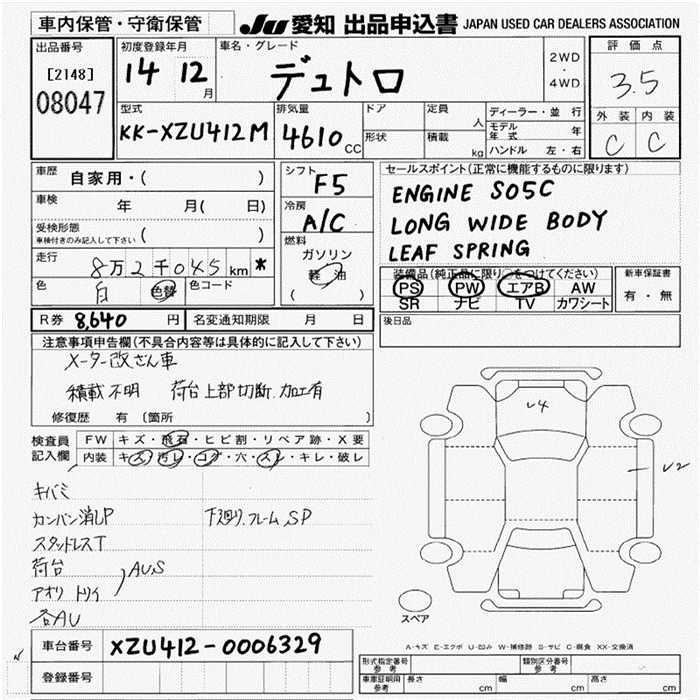 車内保管・守衛保管
JU 愛知 出品申込書 JAPAN USED CAR DEALERS ASSOCIATION
出品番号
[2148]
08047
初度登録年月
14 12 月
車名・グレード
デュトロ
2WD
・
4WD
評価点
3.5
外装 内装
C C
型式
KK-XZU412M
排気量
4610 CC
ドア
形状
定員 人
積載 kg
ディーラー・並行
モデル年式 年
ハンドル 左・右
車歴 自家用・( )
車検 年 月( 日)
受検形態
車検付きのみ記入して下さい ( )
走行 8万2千045 km *
色 白 色替 色コード
シフト F5
冷房 A/C
燃料
ガソリン
軽油
( )
セールスポイント(正常に機能するものに限ります)
ENGINE S05C
LONG WIDE BODY
LEAF SPRING
装備品(純正品に限り○をつけてください)
PS PW エアB AW
SR ナビ TV カワシート
新車保証書
有・無
R券 8,640 円 名変通知期限 月 日
後日品
注意事項申告欄(不具合内容等は具体的に記入して下さい)
メーター改ざん車
積載不明 荷台上部切断.加工有
修復歴 有 〔箇所 〕
検査員
記入欄
FW キズ・飛石・ヒビ割・リペア跡・X要
内装 キズ・汚レ・コゲ・穴・スレ・キレ・破レ
キバミ
カンバン消しP 下廻リ.フレームSP
スタッドレスT
荷台
アオリ トリイ AUS
各AU
V4
V2
スペア
A-キズ E-エクボ U-凹み W-補修跡 S-サビ C-腐食 XX-交換済
車台番号 XZU412-0006329
登録番号
形式指定番号 参考
類別区分番号 参考
車庫証明用 参考 長さ cm 幅 cm 高さ cm